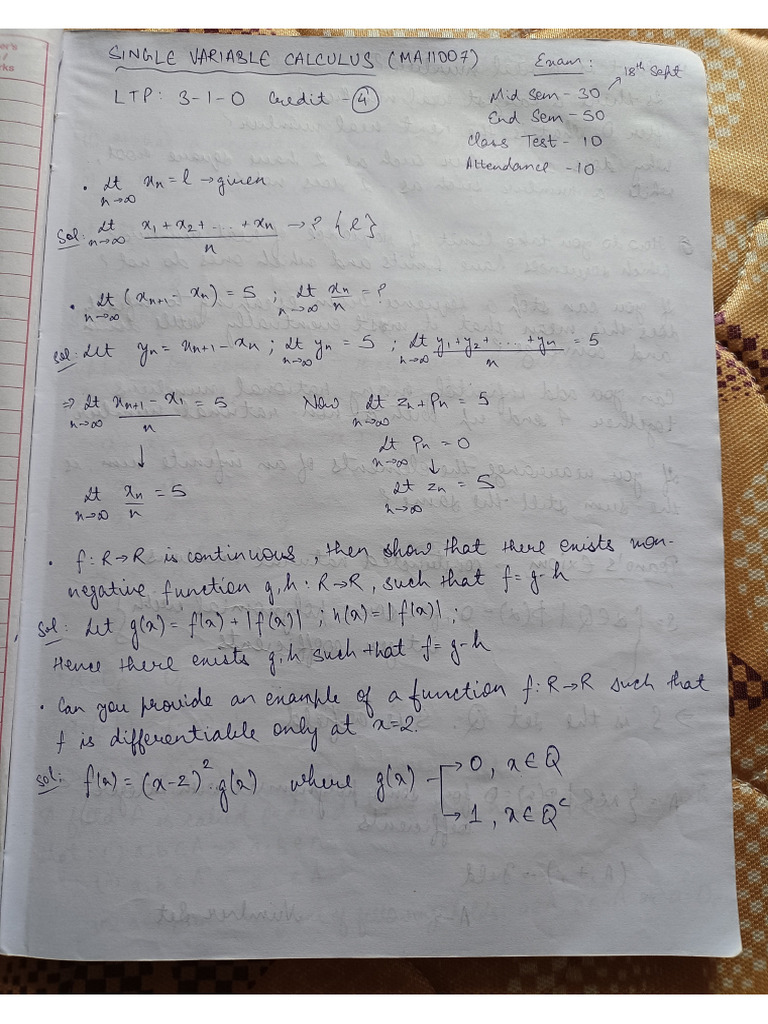 SINGLE VARIABLE CALCULUS (MA11007)
Exam :
LTP: 3-1-0 Credit - 4
Mid Sem - 30 → 18th Sept
End Sem - 50
Class Test - 10
Attendance - 10
• Lt n→∞ xn = l → given
Sol: Lt n→∞ (x1 + x2 + ... + xn)/n → ? {l}
• Lt n→∞ (xn+1 - xn) = 5 ; Lt n→∞ xn/n = ?
Sol: Let yn = xn+1 - xn ; Lt n→∞ yn = 5 ; Lt n→∞ (y1 + y2 + ... + yn)/n = 5
⇒ Lt n→∞ (xn+1 - x1)/n = 5 Now Lt n→∞ zn + pn = 5
Lt n→∞ pn = 0
↓ ↓
Lt n→∞ xn/n = 5 Lt n→∞ zn = 5
• f: R→R is continuous, then show that there exists non-
negative function g,h : R→R, such that f = g-h
Sol: Let g(x) = f(x) + |f(x)| ; h(x) = |f(x)| ;
Hence there exists g,h such that f = g-h
• Can you provide an example of a function f: R→R such that
f is differentiable only at x=2.
Sol: f(x) = (x-2)^2 . g(x) where g(x) → 0, x∈Q
→ 1, x∈Q^c